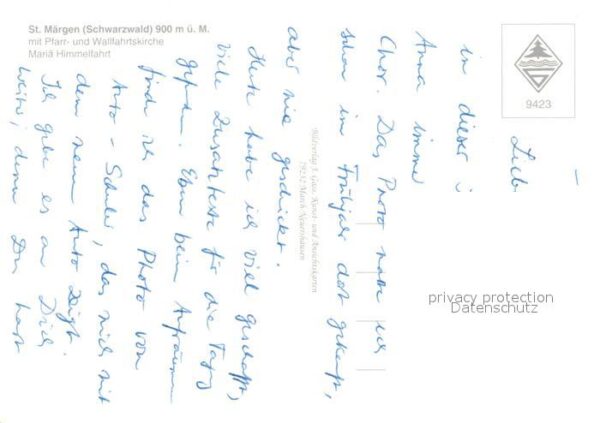 St. Märgen (Schwarzwald) 900 m ü. M.
mit Pfarr- und Wallfahrtskirche
Mariä Himmelfahrt
9423
Lieb
in dieser
Anna immer
Chor. Das Photo habe ich
schon im Frühjahr dort gekauft,
aber nie geschickt.
Heute habe ich viel geschafft,
viele Zusatztexte für die
gefunden. Eben beim Aufräumen
finde ich das Photo von
Auto-Schulei, das mich mit
dem neuen Auto zeigt.
Ich gebe es an Dich
weiter, denn Du hast
79232 March-Neuershausen
privacy protection
Datenschutz